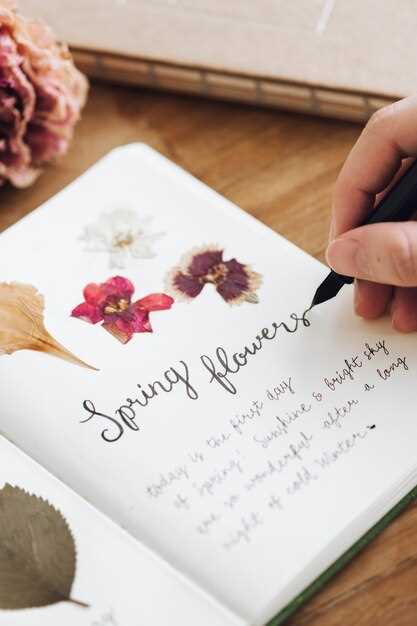 Spring flowers
today is the first day
of spring! Sunshine & bright sky
are so wonderful after a long
night of cold Winter.